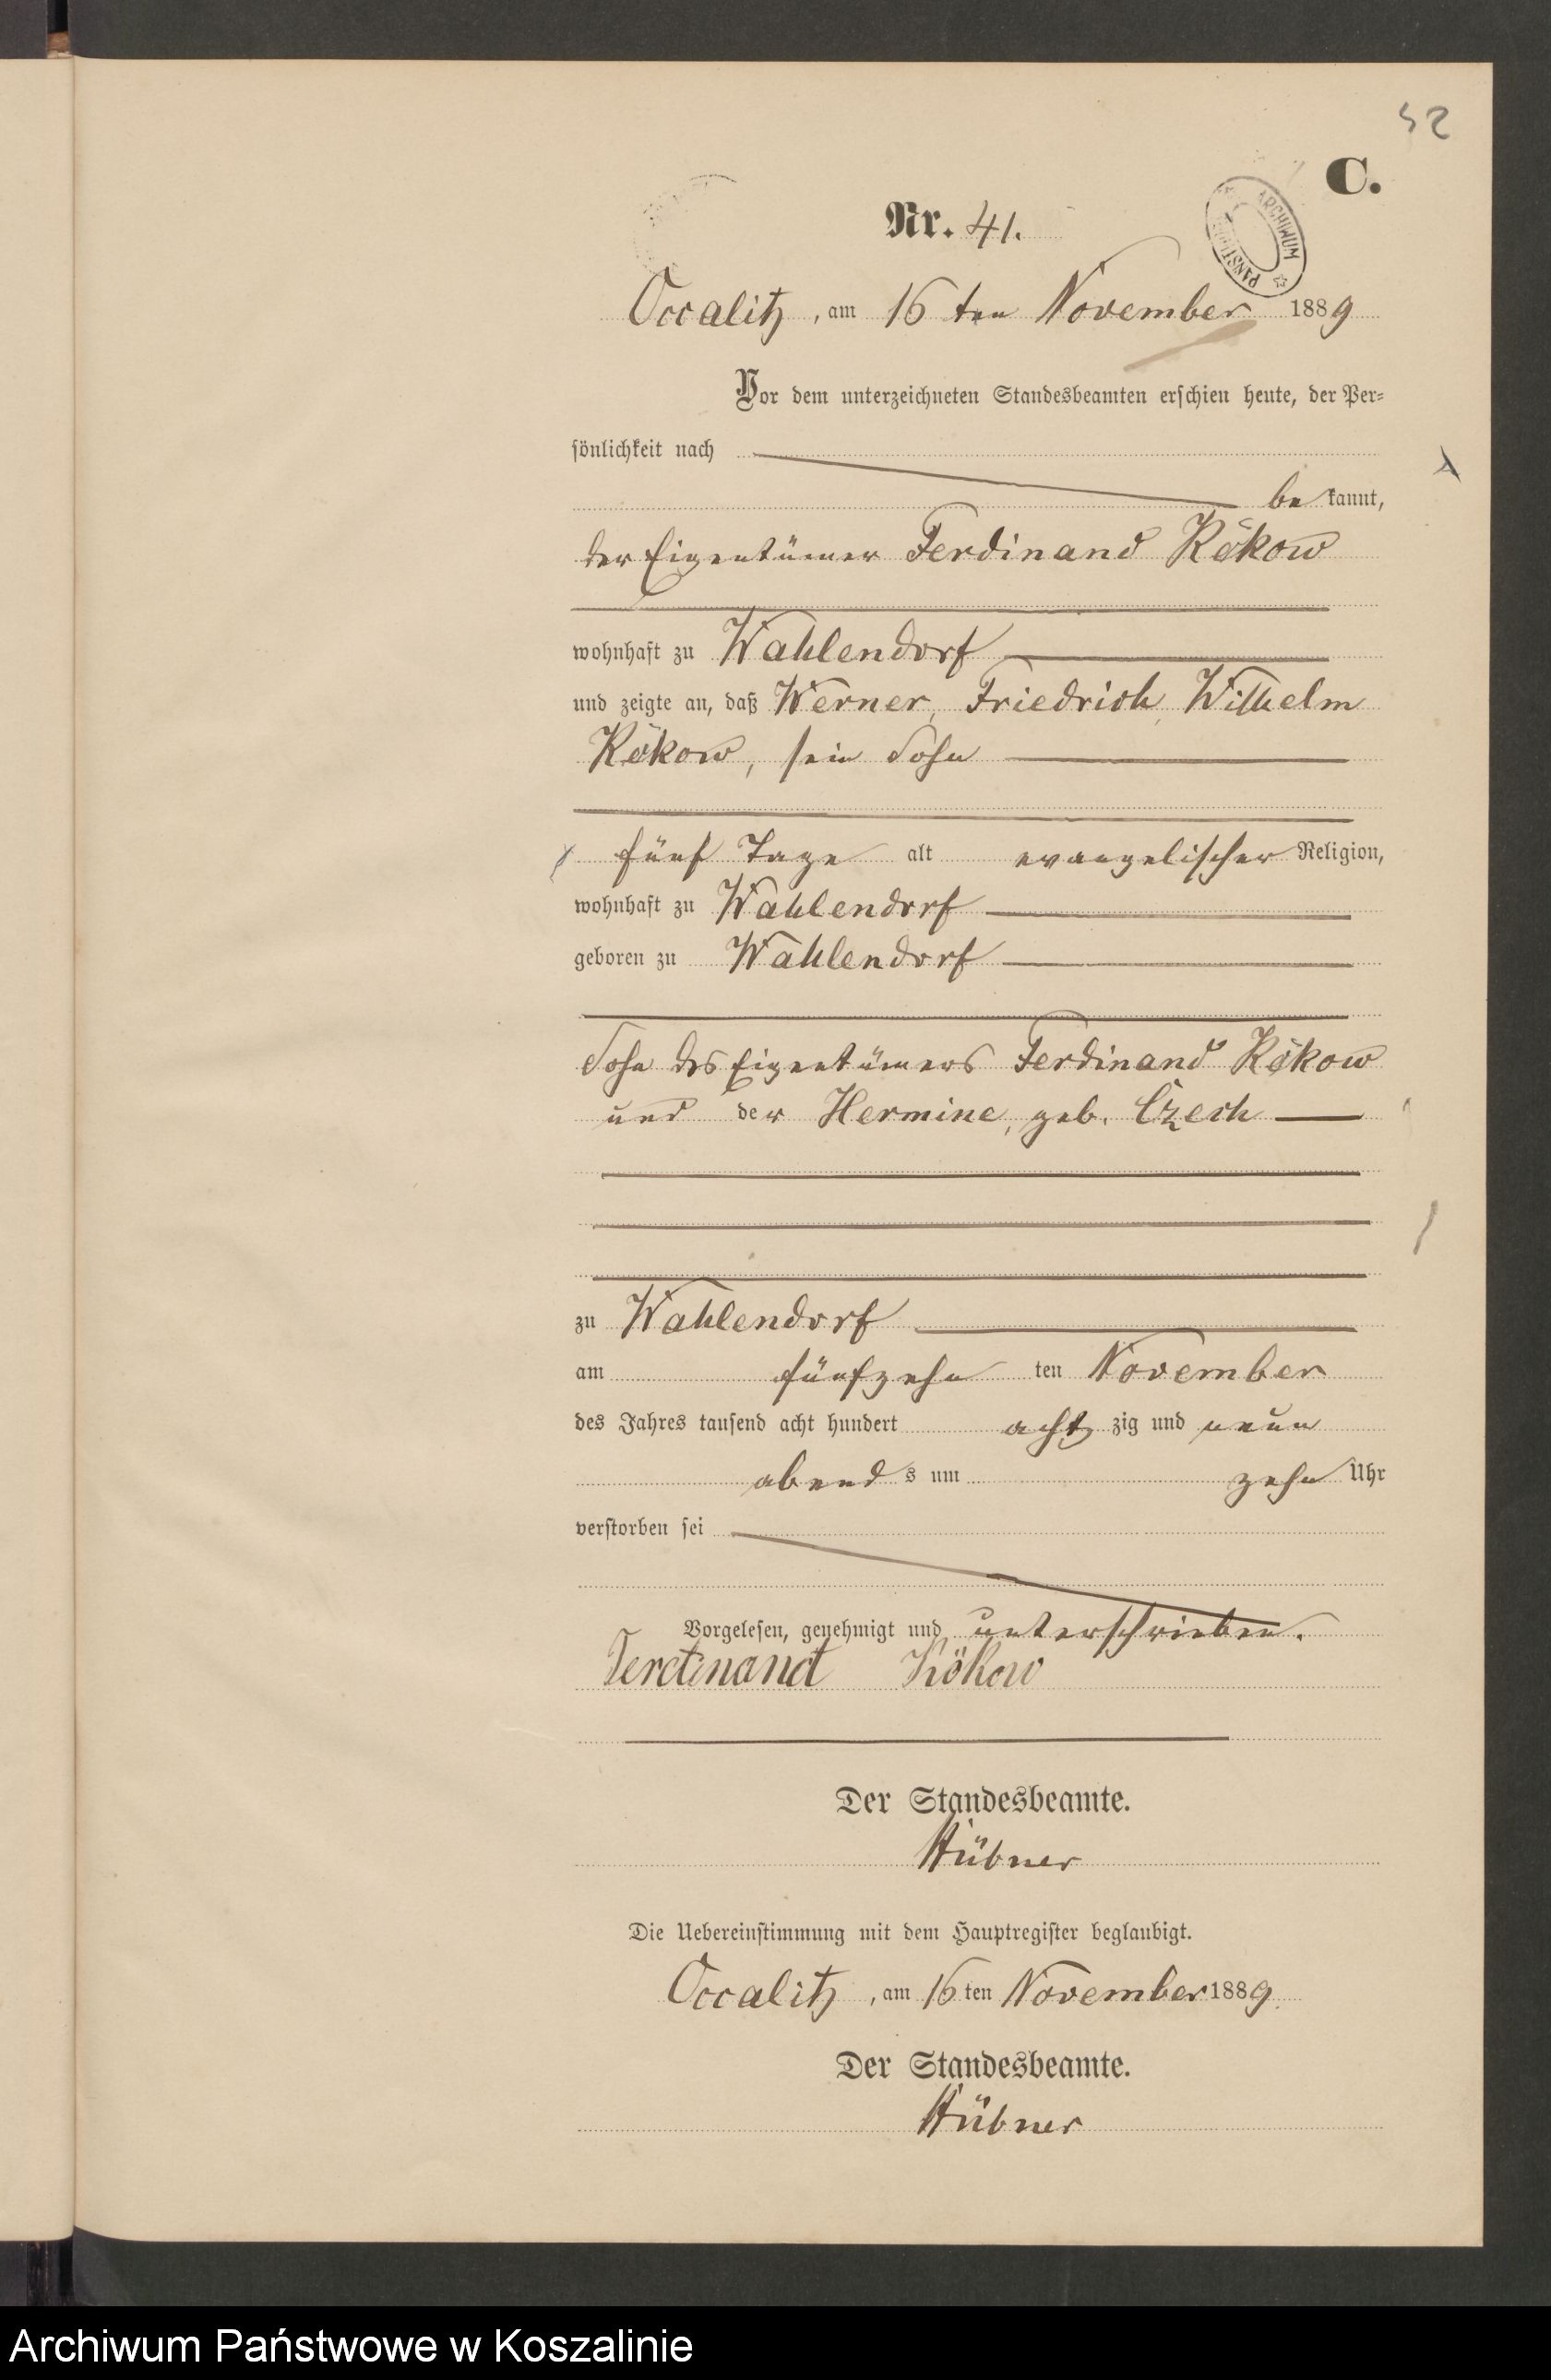 52
C.
Nr. 41.
ARCHIWUM PAŃSTWOWE
Occalitz, am 16 ten November 1889
Vor dem unterzeichneten Standesbeamten erschien heute, der Per-
sönlichkeit nach
be kannt,
der Eigentümer Ferdinand Kökow
wohnhaft zu Wahlendorf
und zeigte an, daß Werner, Friedrich, Wilhelm
Kökow, sein Sohn
fünf Tage alt evangelischer Religion,
wohnhaft zu Wahlendorf
geboren zu Wahlendorf
Sohn des Eigentümers Ferdinand Kökow
und der Hermine, geb. Czech
zu Wahlendorf
am fünfzehn ten November
des Jahres tausend acht hundert acht zig und neun
abend s um zehn Uhr
verstorben sei
Vorgelesen, genehmigt und unterschrieben.
Ferdinand Kökow
Der Standesbeamte.
Hübner
Die Uebereinstimmung mit dem Hauptregister beglaubigt.
Occalitz, am 16 ten November 1889.
Der Standesbeamte.
Hübner
Archiwum Państwowe w Koszalinie